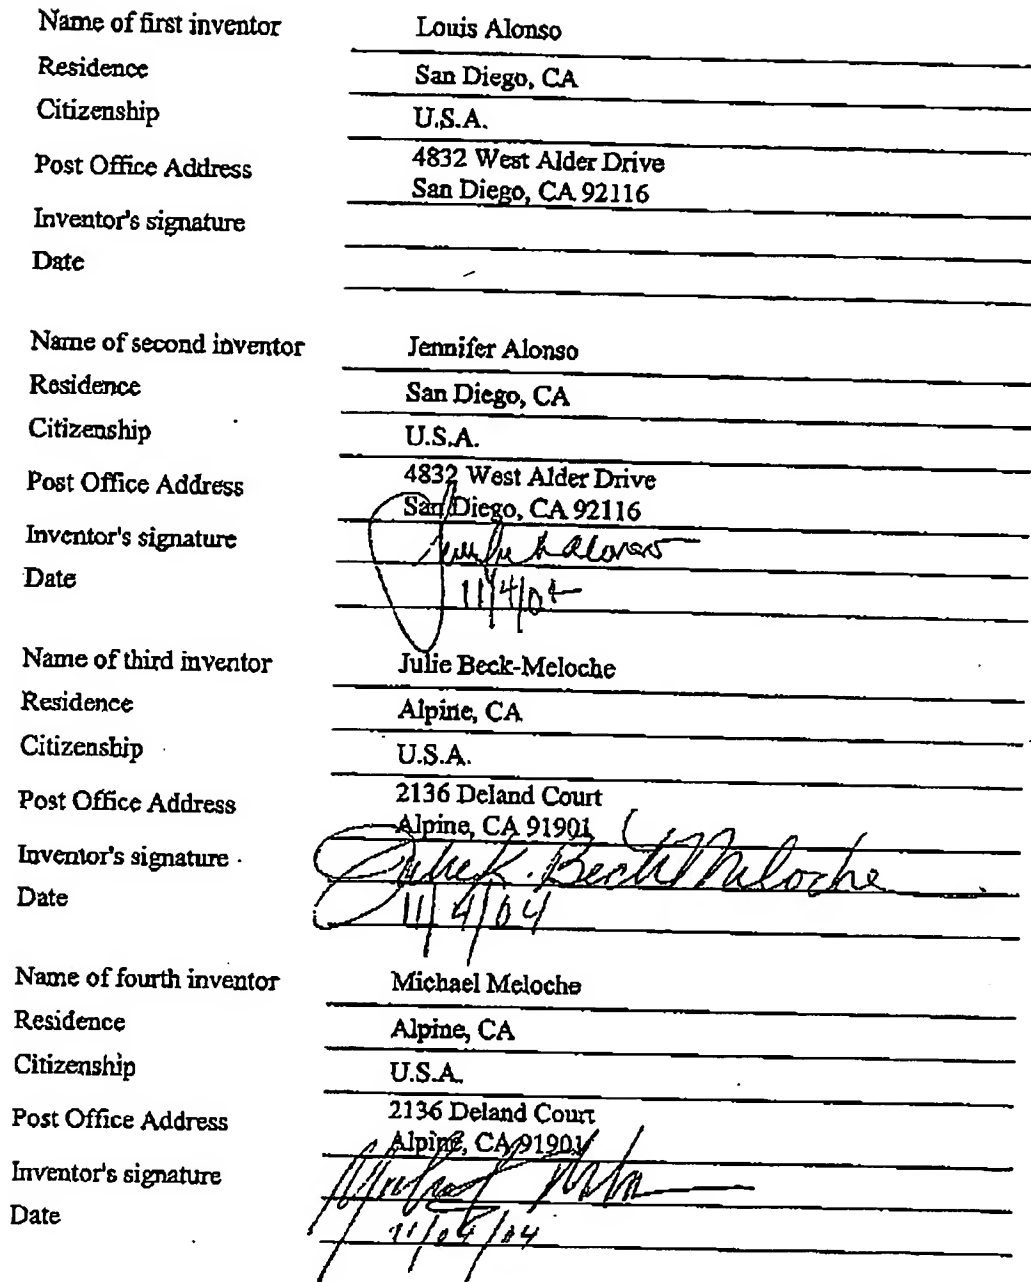 Name of first inventor Louis Alonso
Residence San Diego, CA
Citizenship U.S.A.
Post Office Address 4832 West Alder Drive
San Diego, CA 92116
Inventor's signature
Date
Name of second inventor Jennifer Alonso
Residence San Diego, CA
Citizenship U.S.A.
Post Office Address 4832 West Alder Drive
San Diego, CA 92116
Inventor's signature Alonso
Date 11/4/04
Name of third inventor Julie Beck-Meloche
Residence Alpine, CA
Citizenship U.S.A.
Post Office Address 2136 Deland Court
Alpine, CA 91901
Inventor's signature Julie K. Beck Meloche
Date 11/4/04
Name of fourth inventor Michael Meloche
Residence Alpine, CA
Citizenship U.S.A.
Post Office Address 2136 Deland Court
Alpine, CA 91901
Inventor's signature
Date 11/04/04